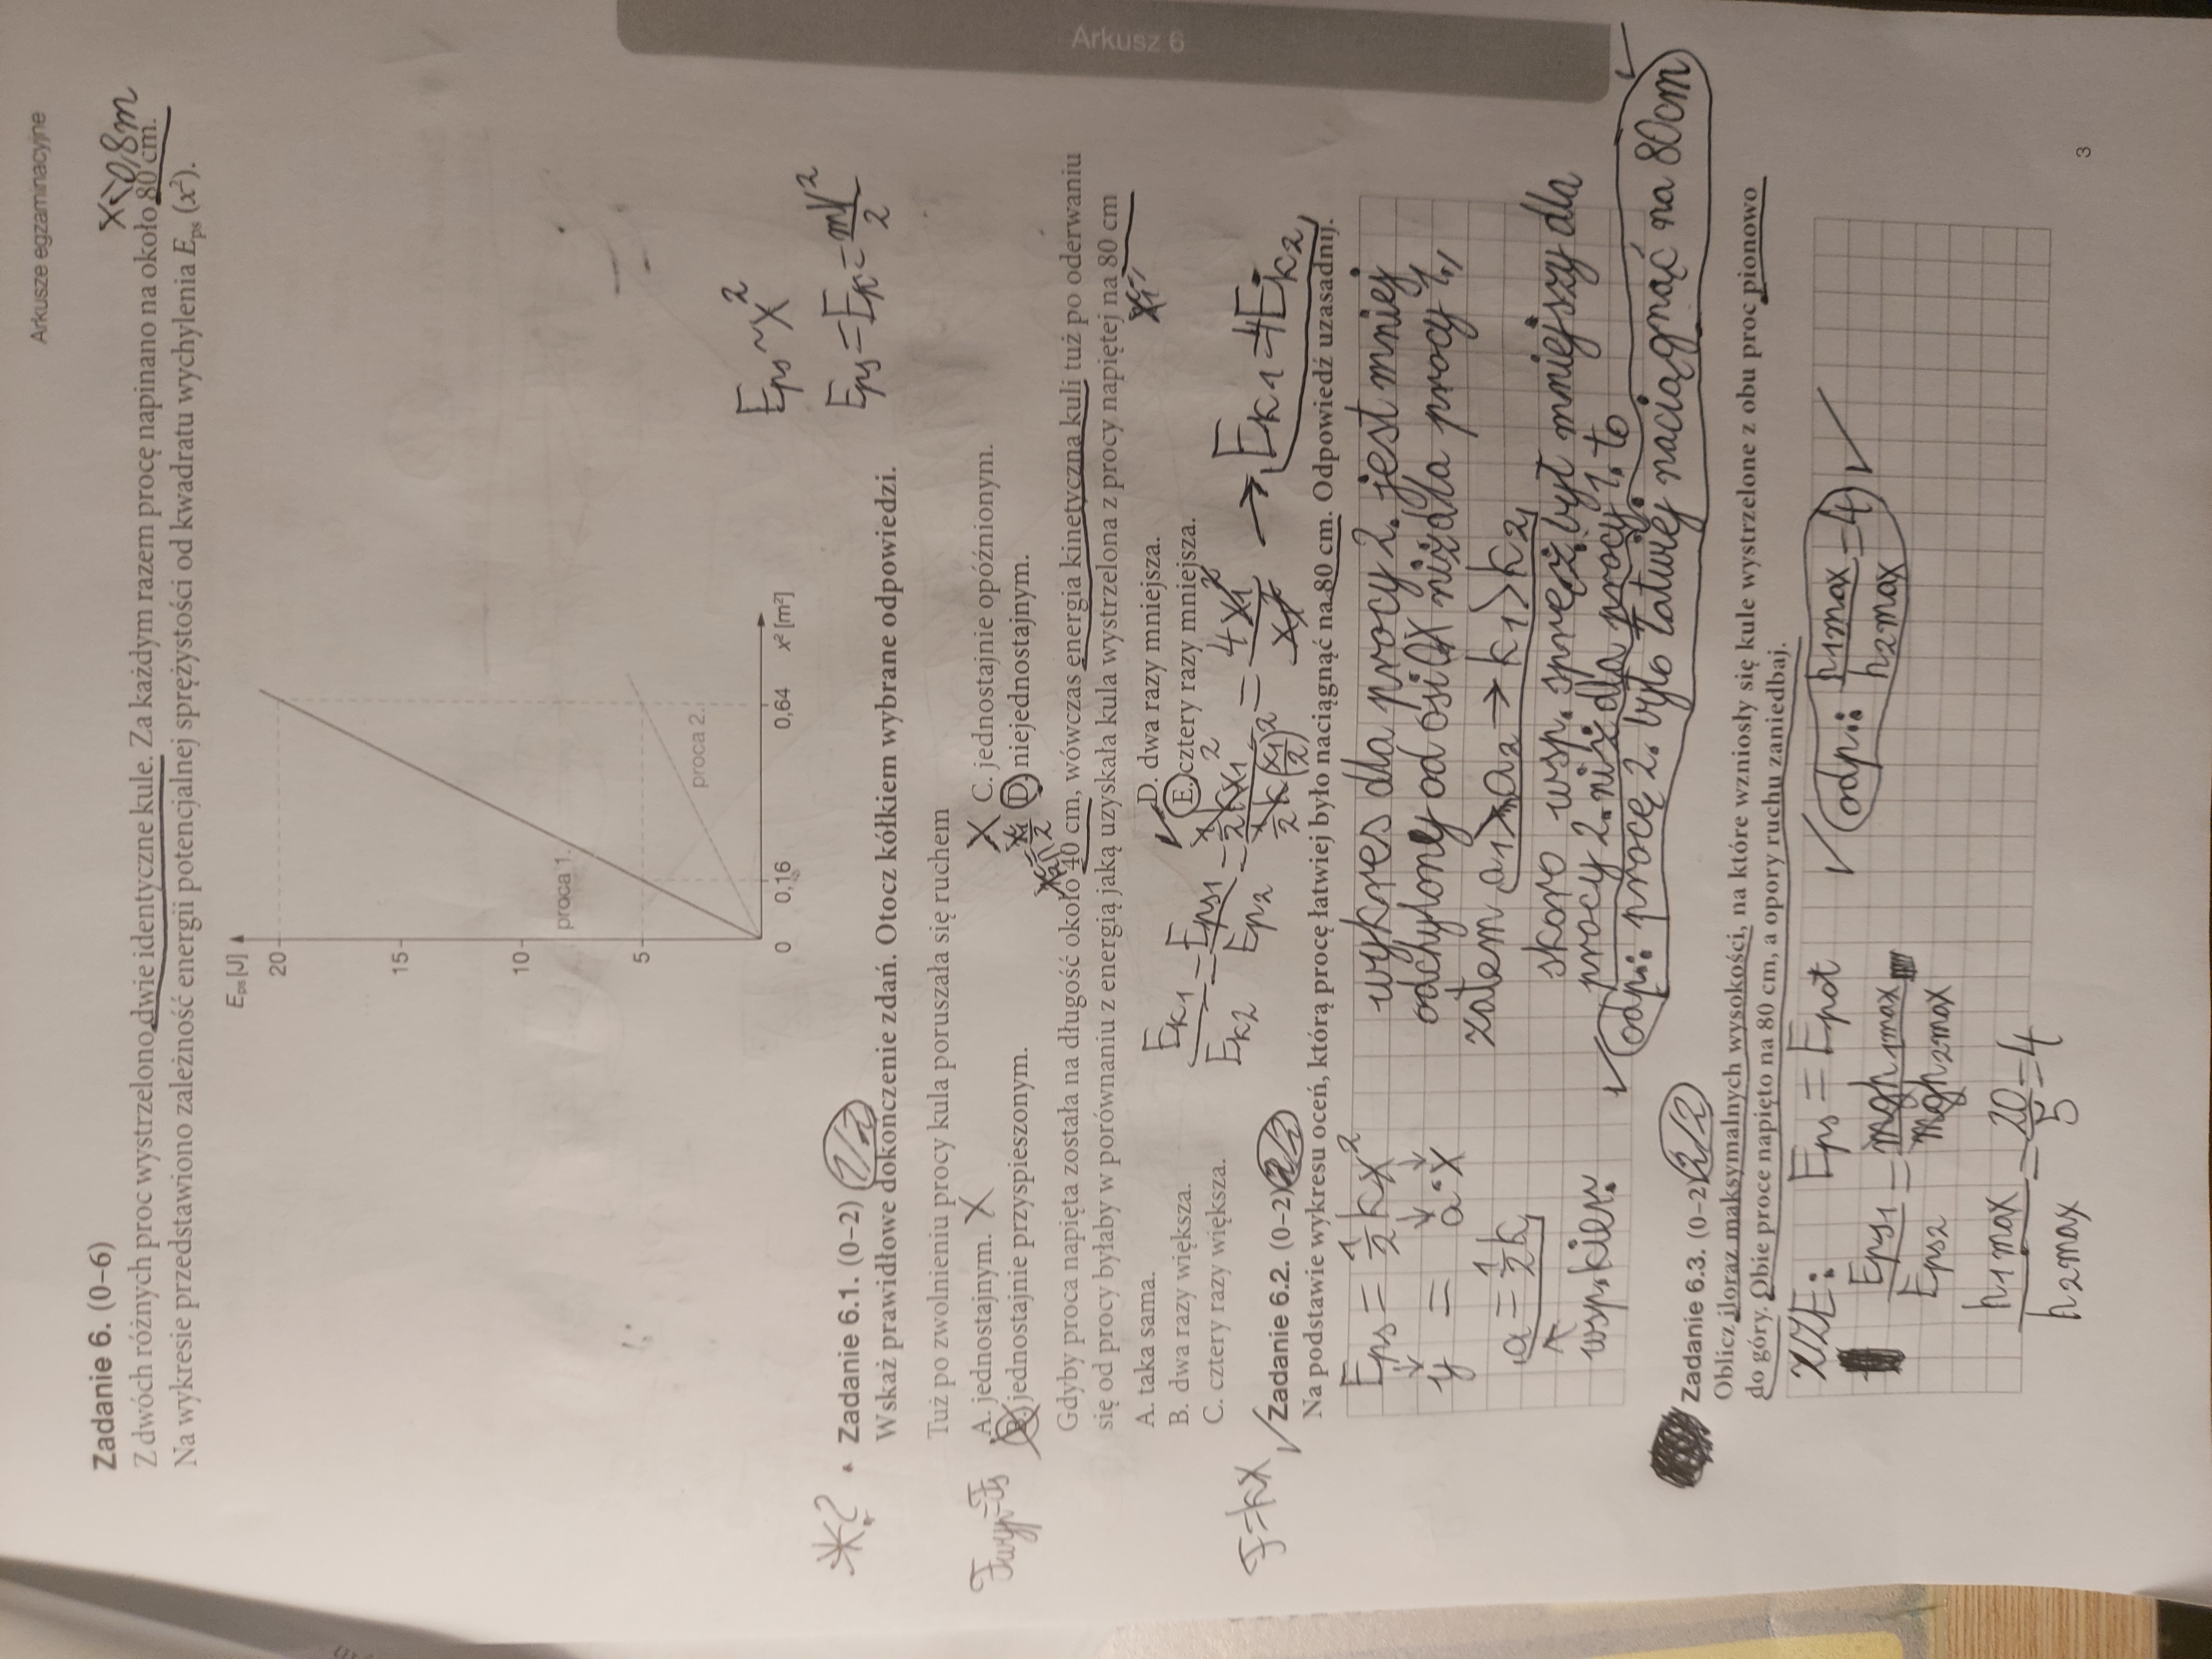 Arkusze egzaminacyjne
Zadanie 6. (0–6)
x=0,8m
Z dwóch różnych proc wystrzelono dwie identyczne kule. Za każdym razem procę napinano na około 80 cm.
Na wykresie przedstawiono zależność energii potencjalnej sprężystości od kwadratu wychylenia Eps (x²).
Eps [J]
20
15
10
5
0
0,16
0,64
x² [m²]
proca 1.
proca 2.
Eps~x²
Eps=Ek=mV²/2
*?
Zadanie 6.1. (0–2) 1/2
Wskaż prawidłowe dokończenie zdań. Otocz kółkiem wybrane odpowiedzi.
Tuż po zwolnieniu procy kula poruszała się ruchem
A. jednostajnym. X
X C. jednostajnie opóźnionym.
Fwyp=Fs
B. jednostajnie przyspieszonym.
D. niejednostajnym.
Gdyby proca napięta została na długość około 40 cm, wówczas energia kinetyczna kuli tuż po oderwaniu
się od procy byłaby w porównaniu z energią jaką uzyskała kula wystrzelona z procy napiętej na 80 cm
A. taka sama.
D. dwa razy mniejsza.
B. dwa razy większa.
E. cztery razy mniejsza.
C. cztery razy większa.
Ek1/Ek2 = Eps1/Ep2 = ½kx1²/½k(x1/2)² = 4x1²/x1² → Ek1=4Ek2
F=kx
Zadanie 6.2. (0–2) 2/2
Na podstawie wykresu oceń, którą procę łatwiej było naciągnąć na 80 cm. Odpowiedź uzasadnij.
Eps=½kx²
y = a·x
a=½k
wsp. kier.
wykres dla procy 2. jest mniej
odchylony od osi OX niż dla procy 1.,
zatem a1>a2 → k1>k2,
skoro wsp. spręż. był mniejszy dla
procy 2. niż dla procy 1., to
odp.: procę 2. było łatwiej naciągnąć na 80cm
Arkusz 6
Zadanie 6.3. (0–2) 2/2
Oblicz iloraz maksymalnych wysokości, na które wzniosły się kule wystrzelone z obu proc pionowo
do góry. Obie proce napięto na 80 cm, a opory ruchu zaniedbaj.
zZE: Eps=Epot
Eps1/Eps2 = mgh1max/mgh2max
h1max/h2max = 20/5 = 4
odp.: h1max/h2max = 4
3